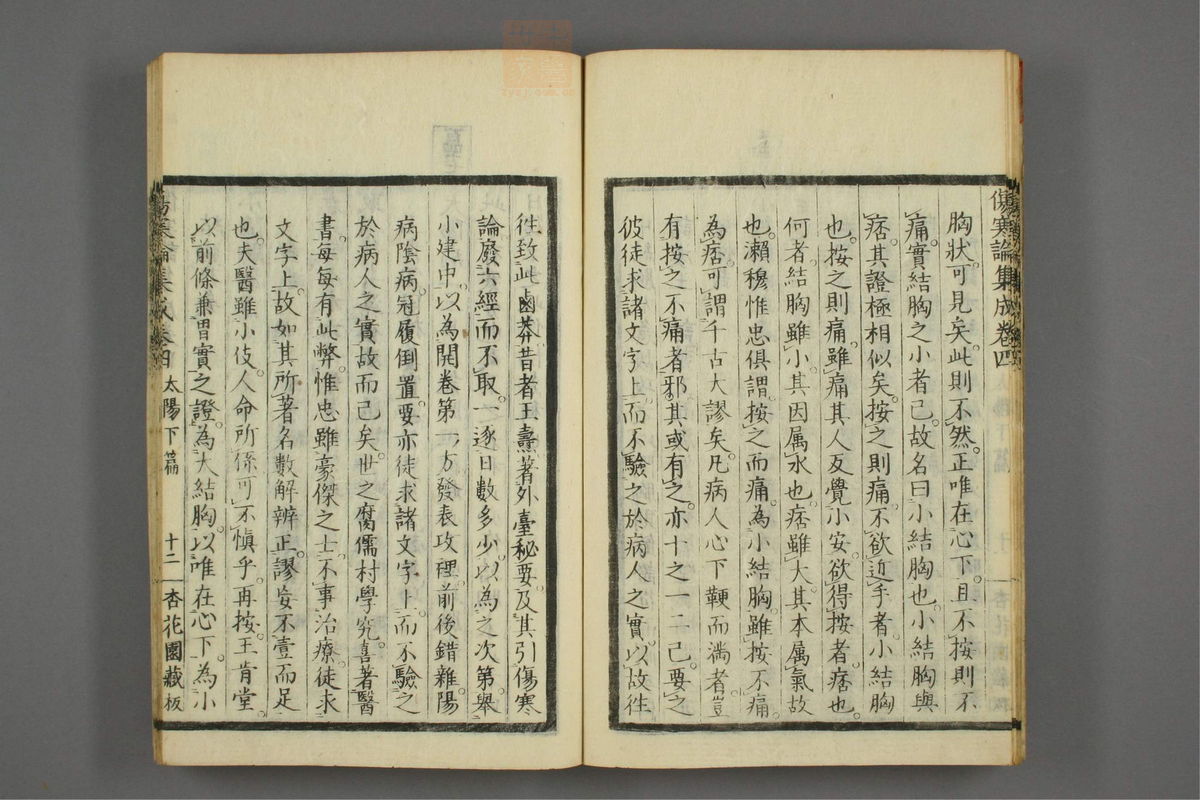 傷寒論集成卷四
胸狀可見矣。此則不然。正唯在心下。且不按則不
痛。實結胸之小者已。故名曰小結胸也。小結胸與
痞。其證極相似矣。按之則痛。不欲近手者。小結胸
也。按之則痛。雖痛其人反覺小安。欲得按者。痞也。
何者。結胸雖小。其因属水也。痞雖大。其本属氣故
也。瀨穆惟忠俱謂按之而痛。為小結胸。雖按不痛。
為痞。可謂千古大謬矣。凡病人心下鞕而滿者。豈
有按之不痛者邪。其或有之。亦十之一二已。要之
彼徒求諸文字上。而不驗之於病人之實。以故徃
徃致此鹵莽。昔者王燾著外臺秘要。及其引傷寒
論。廢六經而不取。一逐日數多少。以為之次第。舉
小建中。以為開卷第一方。發表攻裡。前後錯雜。陽
病陰病。冠履倒置。要亦徒求諸文字上。而不驗之
於病人之實故而已矣。世之腐儒村學究。喜著醫
書。每每有此弊。惟忠雖豪傑之士。不事治療。徒求
文字上。故如其所著名數解辨正。謬妄不壹而足
也。夫醫雖小伎。人命所係。可不慎乎。再按。王肯堂。
以前條兼胃實之證。為大結胸。以唯在心下。為小
傷寒論集成卷四 太陽下篇 十二 杏花園藏板